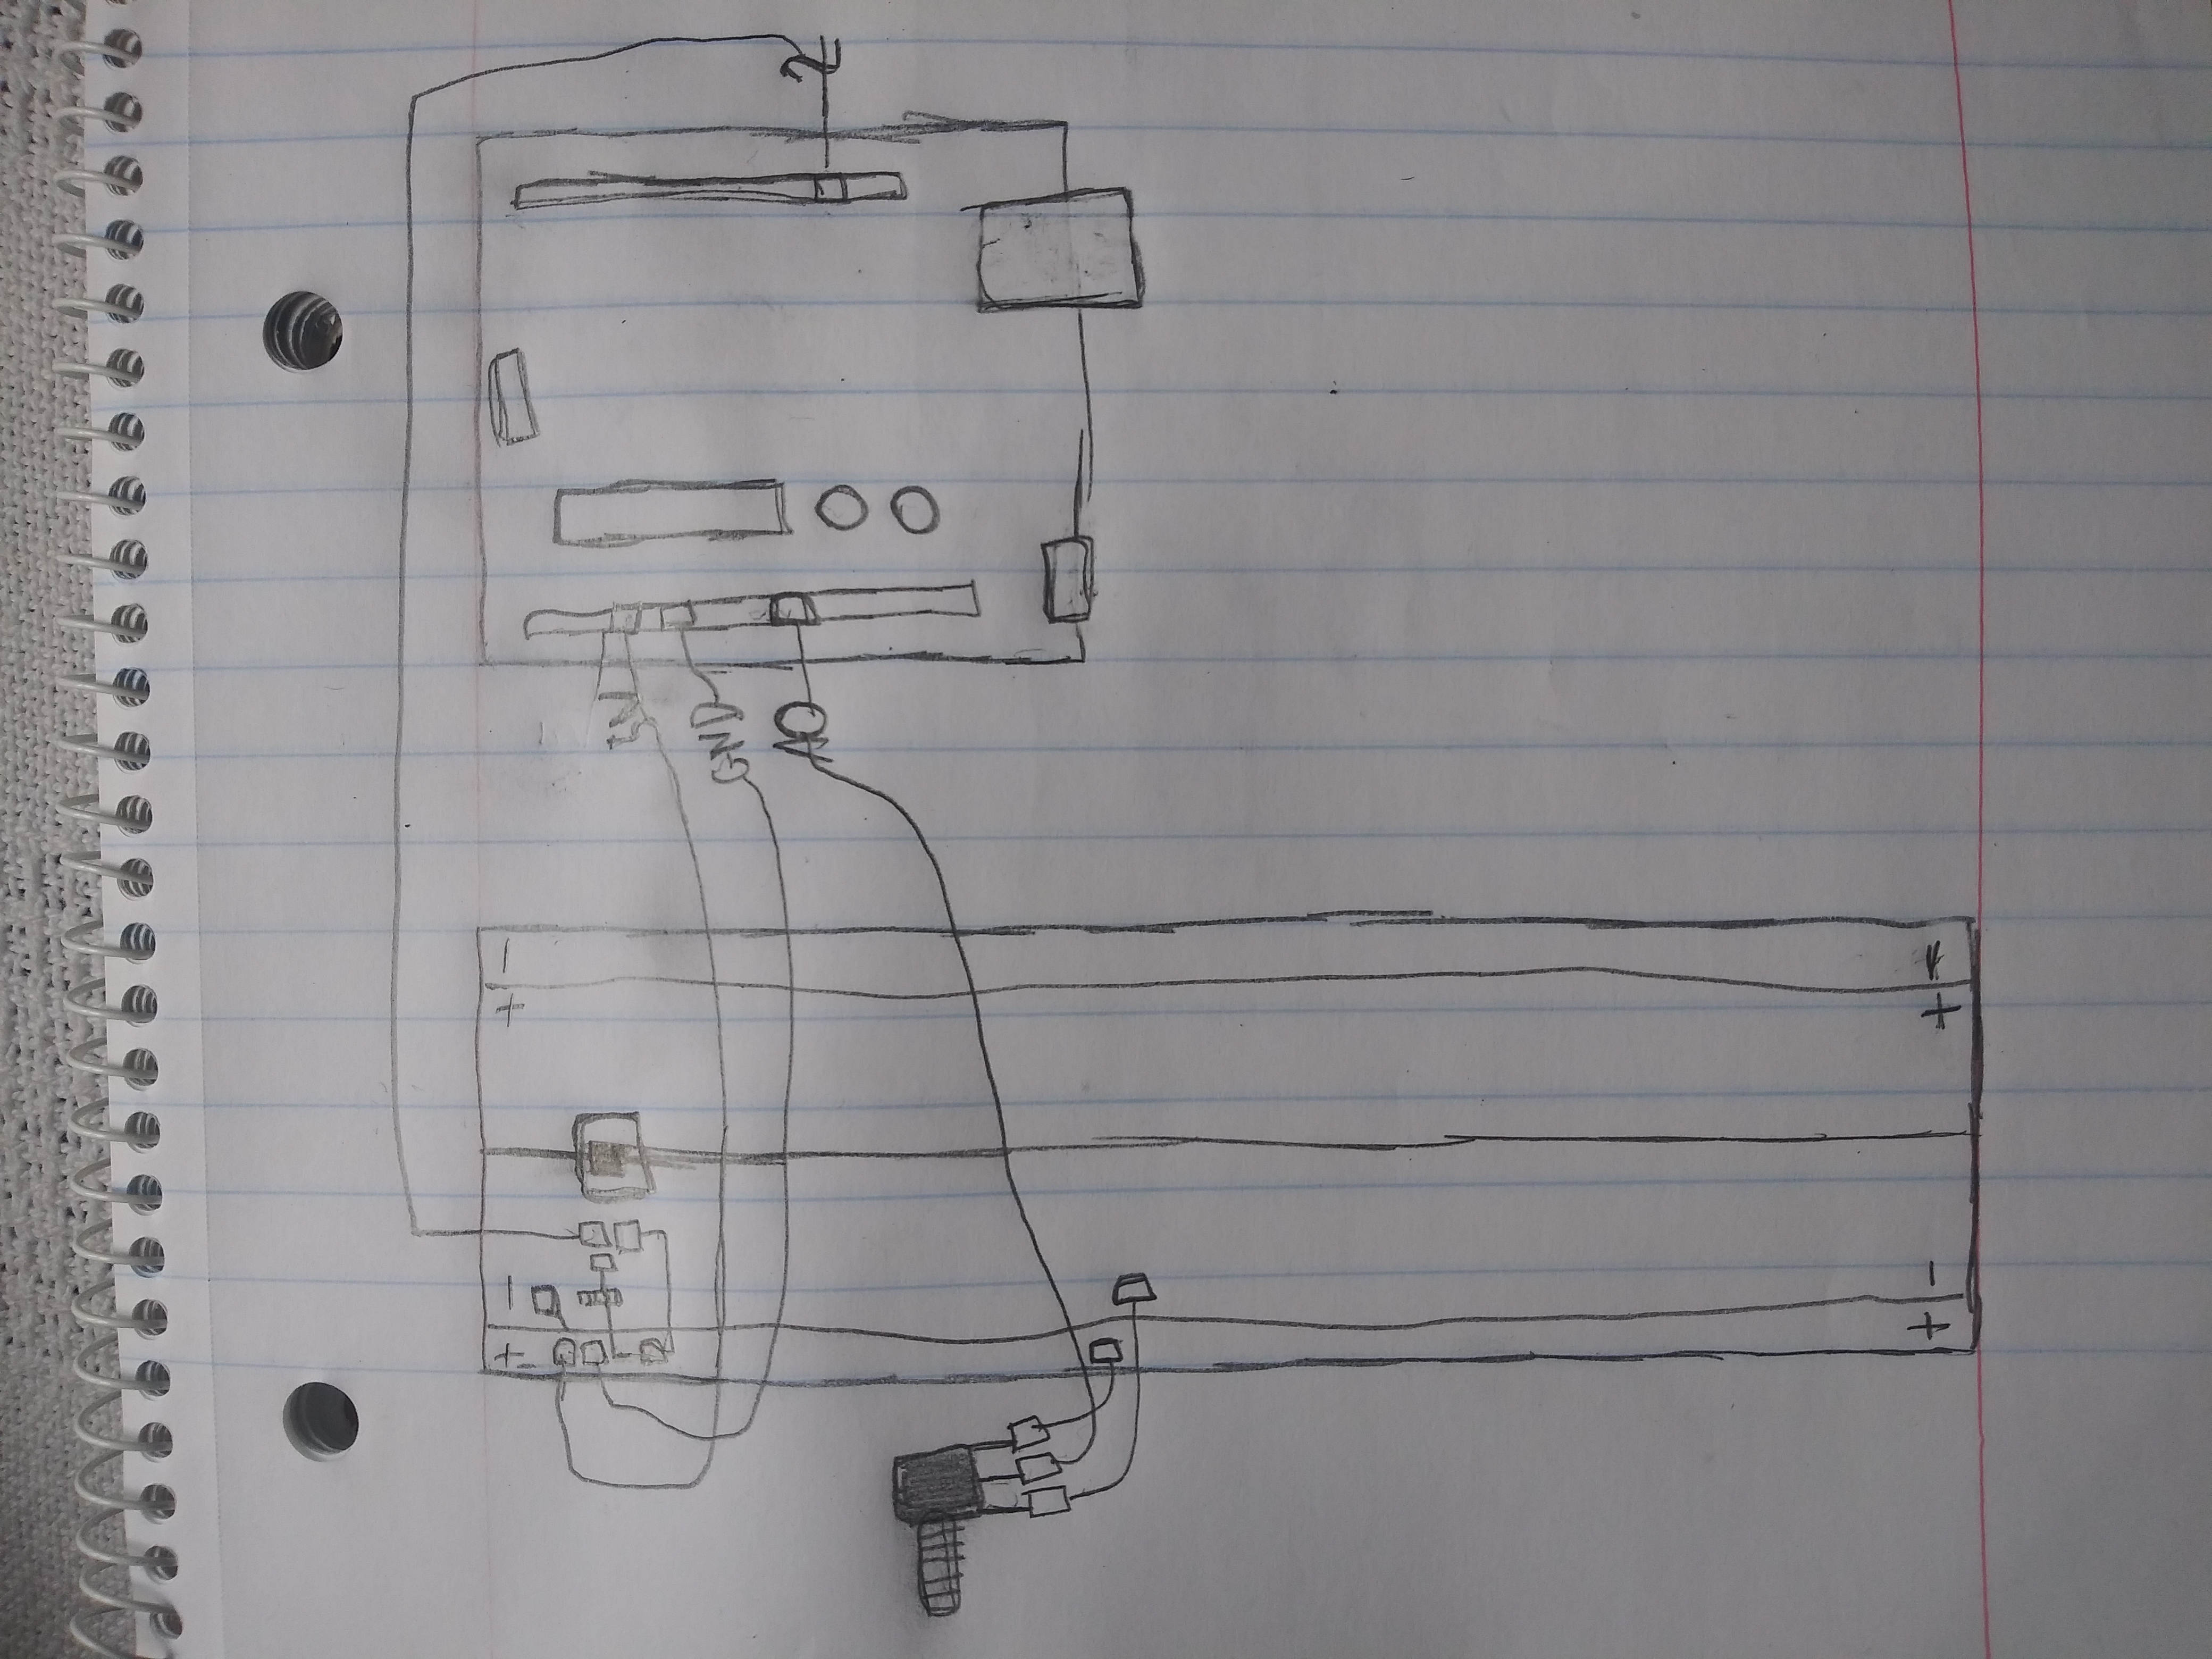 + - + -
5V
GND
A0
2
+ - + -